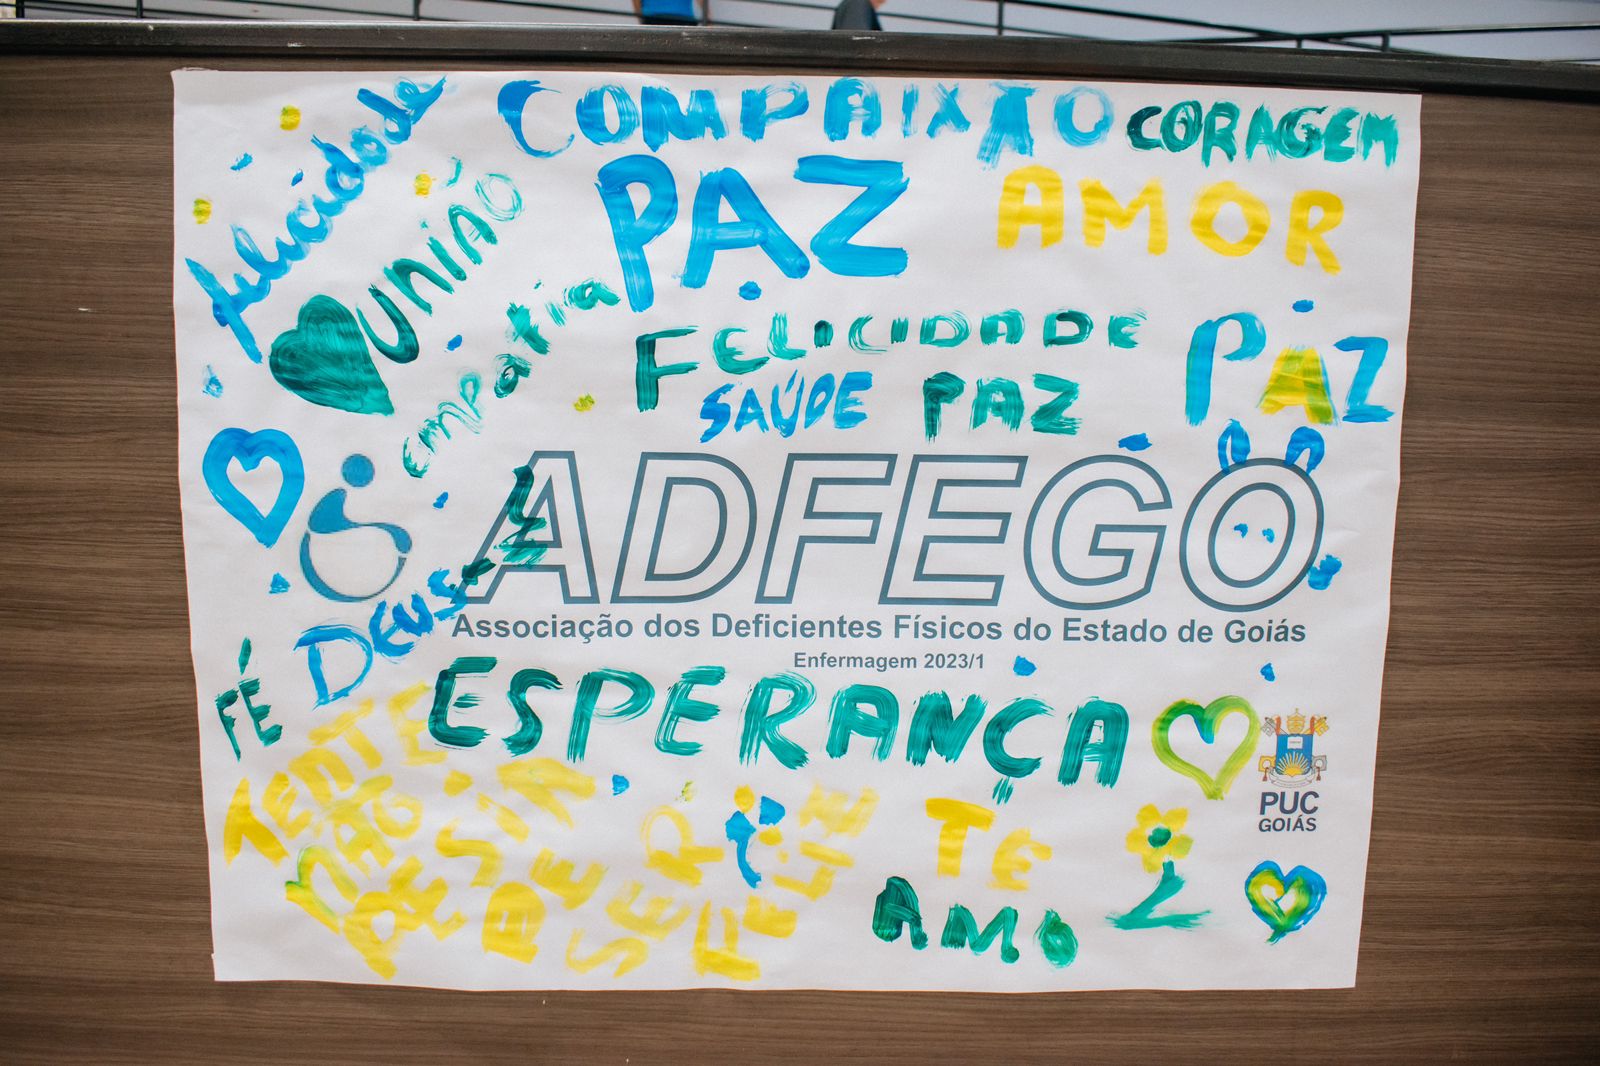 felicidade
COMPAIXÃO
CORAGEM
UNIÃO
PAZ
AMOR
empatia
FELICIDADE
PAZ
SAÚDE
PAZ
ADFEGO
Associação dos Deficientes Físicos do Estado de Goiás
Enfermagem 2023/1
DEUS
FÉ
ESPERANÇA
TENTE
NÃO
DESIN
DE
SER
FELIZ
TE
AMO
PUC
GOIÁS